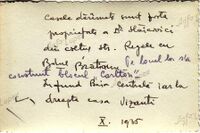 Casele dărâmate sunt foste
proprietate a D. Slăvici
din colțul str. Regale cu
Bdul Brătianu. Pe locul lor s'a
construit blocul "Carlton"
In fund Baia Centrală iar la
dreapta casa Vizanti
X. 1935